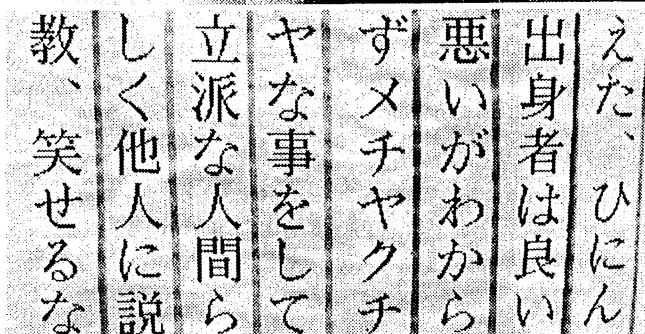 えた、ひにん
出身者は良い
悪いがわから
ずメチヤクチ
ヤな事をして
立派な人間ら
しく他人に説
教、笑せるな